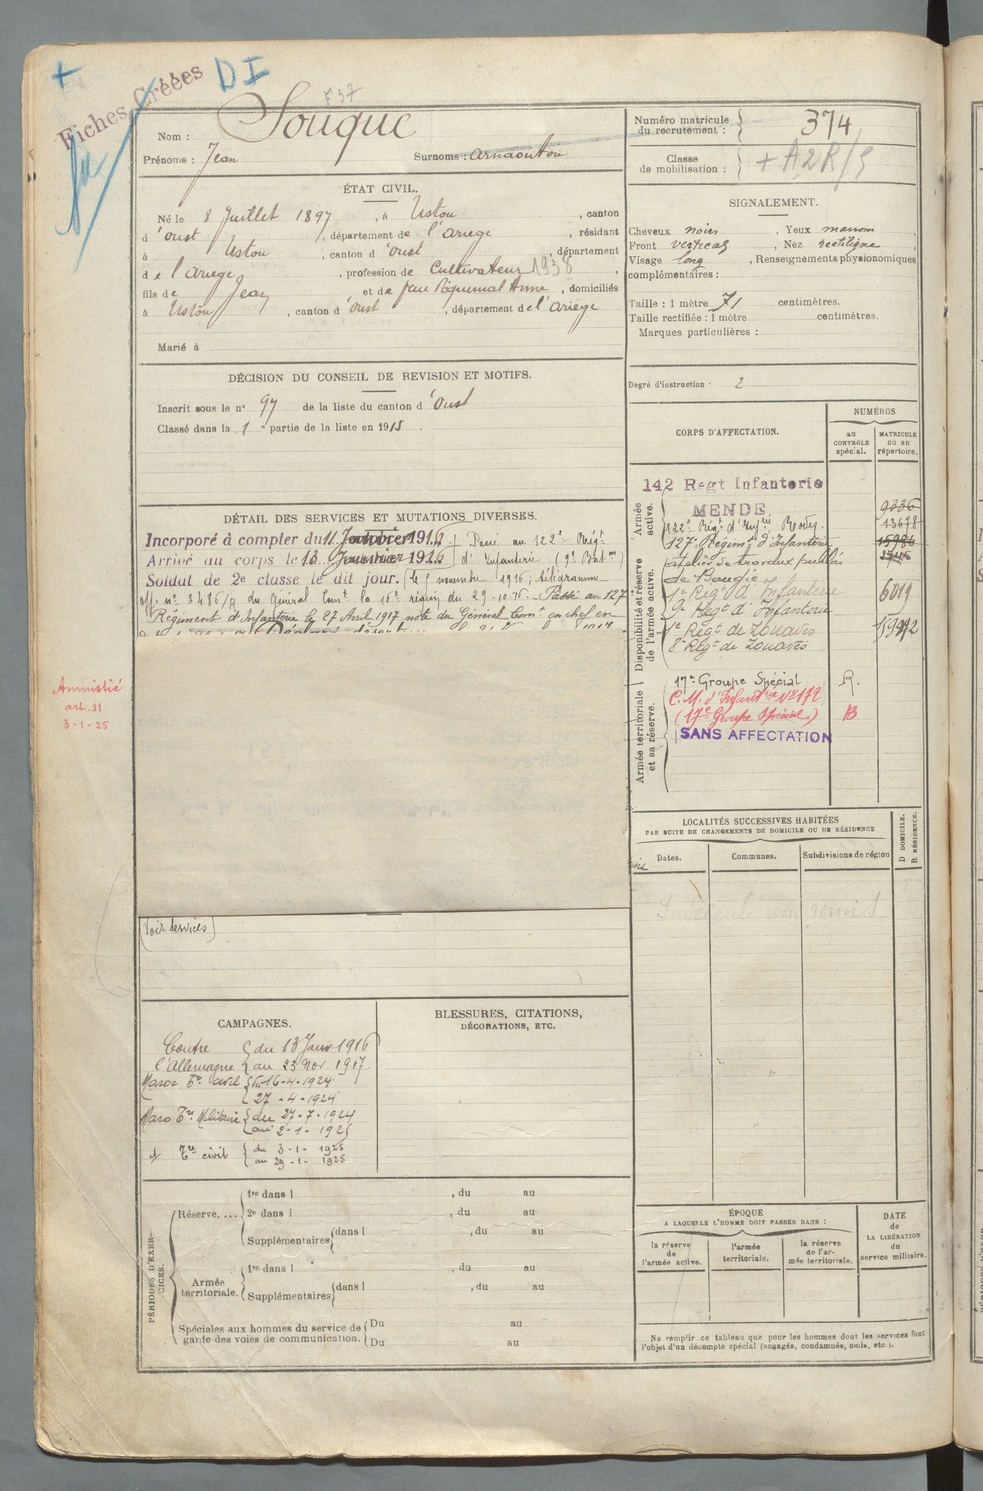 Fiches Créées
DI
F37
Nom : Souque
Prénoms : Jean Surnoms : arnaouton
ÉTAT CIVIL.
Né le 8 Juillet 1897, à Ustou, canton
d'oust, département de l'ariège, résidant
à Ustou, canton d'oust, département
de l'ariège, profession de Cultivateur 1938,
fils de Jean et de feue Piquemal Anne, domiciliés
à Ustou, canton d'oust, département de l'ariège
Marié à
DÉCISION DU CONSEIL DE REVISION ET MOTIFS.
Inscrit sous le n° 97 de la liste du canton d'Oust
Classé dans la 1e partie de la liste en 1915.
DÉTAIL DES SERVICES ET MUTATIONS DIVERSES.
Incorporé à compter du 11 1916 Passé au 122e Régt
Arrivé au corps le 13 1916 d'Infanterie (9e Baton)
Soldat de 2e classe le dit jour. le 1916, télégramme
off. n° 3486/R du Général Comt la 16e région du 29-10-16 - Passé au 127
Régiment d'Infanterie le 27 Avril 1917 note du Général Comt en chef en
Amnistié
art. 11
3-1-25
(Voir Services)
CAMPAGNES.
Contre du 13 Janv. 1916
l'Allemagne au 23 Nov. 1917
Maroc Tre civil du 16-4-1924
27-4-1924
Maroc Tre Militaire du 27-7-1924
au 2-1-1925
d° Tre civil du 3-1-1925
au 29-1-1925
BLESSURES, CITATIONS,
DÉCORATIONS, ETC.
PÉRIODES D'EXERCICES.
Réserve....
1re dans l , du au
2e dans l , du au
Supplémentaires dans l , du au
Armée territoriale.
1re dans l , du au
Supplémentaires dans l , du au
Spéciales aux hommes du service de garde des voies de communication.
Du au
Du au
Numéro matricule du recrutement : 374
Classe de mobilisation : + A2R/S
SIGNALEMENT.
Cheveux noirs, Yeux marrons,
Front vertical, Nez rectiligne,
Visage long, Renseignements physionomiques
complémentaires :
Taille : 1 mètre 71 centimètres.
Taille rectifiée : 1 mètre centimètres.
Marques particulières :
Degré d'instruction : 2
CORPS D'AFFECTATION.
NUMÉROS
AU CONTRÔLE spécial.
MATRICULE OU AU répertoire.
Armée active.
142 Regt Infanterie
MENDE
122e Régt d'Infrie Rodez 13678
127e Régimt d'Infanterie 15986
Disponibilité et réserve de l'armée active.
atelier de travaux publics
de Bougie
1e Régt d'Infanterie 6019
9e Regt d'Infanterie
1e Regt de Zouaves
8e Regt de Zouaves
Armée territoriale et sa réserve.
17e Groupe Spécial R.
C.M. d'Infantrie N° 172
(17e Groupe Spécial) B
SANS AFFECTATION
LOCALITÉS SUCCESSIVES HABITÉES
PAR SUITE DE CHANGEMENTS DE DOMICILE OU DE RÉSIDENCE
Dates.
Communes.
Subdivisions de région
D DOMICILE.
R RÉSIDENCE.
ÉPOQUE
A LAQUELLE L'HOMME DOIT PASSER DANS :
la réserve de l'armée active.
l'armée territoriale.
la réserve de l'armée territoriale.
DATE de LA LIBÉRATION du service militaire.
Ne remplir ce tableau que pour les hommes dont les services font
l'objet d'un décompte spécial (engagés, condamnés, omis, etc.).